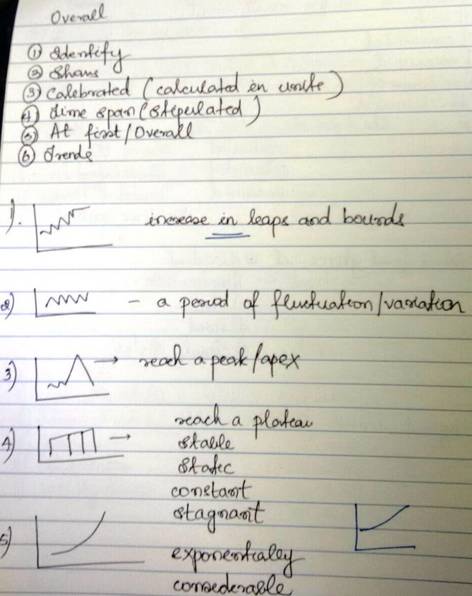 Overall
① Identify
② Shows
③ Calebrated (calculated in units)
④ Time span (stepulated)
⑤ At first/Overall
⑥ Trends
1). increase in leaps and bounds
2) - a period of fluctuation/variation
3) reach a peak/apex
4) reach a plateau
stable
static
constant
stagnant
5) exponentialey
considerable